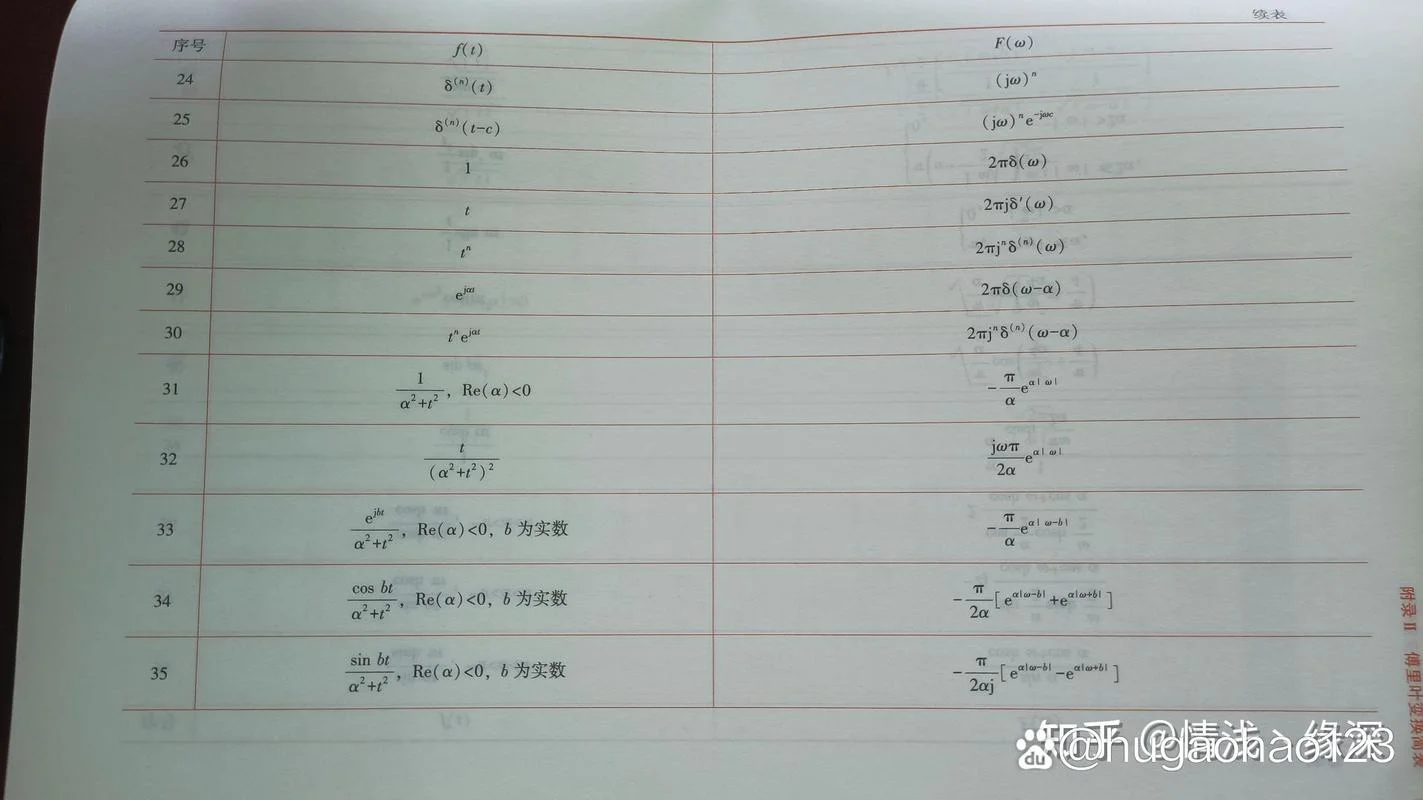 续表
序号 f(t) F(ω)
24 δ⁽ⁿ⁾(t) (jω)ⁿ
25 δ⁽ⁿ⁾(t-c) (jω)ⁿe^{-jωc}
26 1 2πδ(ω)
27 t 2πjδ′(ω)
28 tⁿ 2πjⁿδ⁽ⁿ⁾(ω)
29 e^{jαt} 2πδ(ω-α)
30 tⁿe^{jαt} 2πjⁿδ⁽ⁿ⁾(ω-α)
31 \frac{1}{α²+t²}, Re(α)<0 -\frac{π}{α}e^{α|ω|}
32 \frac{t}{(α²+t²)²} \frac{jωπ}{2α}e^{α|ω|}
33 \frac{e^{jbt}}{α²+t²}, Re(α)<0, b 为实数 -\frac{π}{α}e^{α|ω-b|}
34 \frac{cos bt}{α²+t²}, Re(α)<0, b 为实数 -\frac{π}{2α}[e^{α|ω-b|}+e^{α|ω+b|}]
35 \frac{sin bt}{α²+t²}, Re(α)<0, b 为实数 -\frac{π}{2αj}[e^{α|ω-b|}-e^{α|ω+b|}]
附录Ⅱ 傅里叶变换简表
知乎 @情浅、缘深
du @hugaohao123